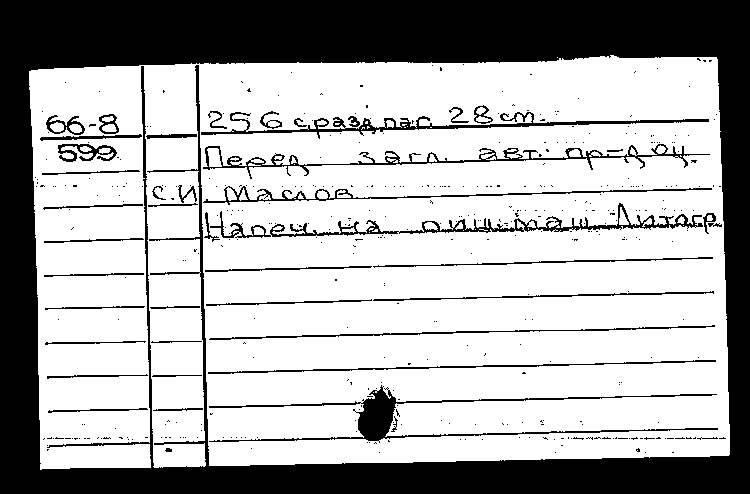 66-8 256 с.разд.паг. 28 см.
599 Перед загл. авт.: пр-доц.
С.И. Маслов
Напеч. на пиш. маш. Литогр.